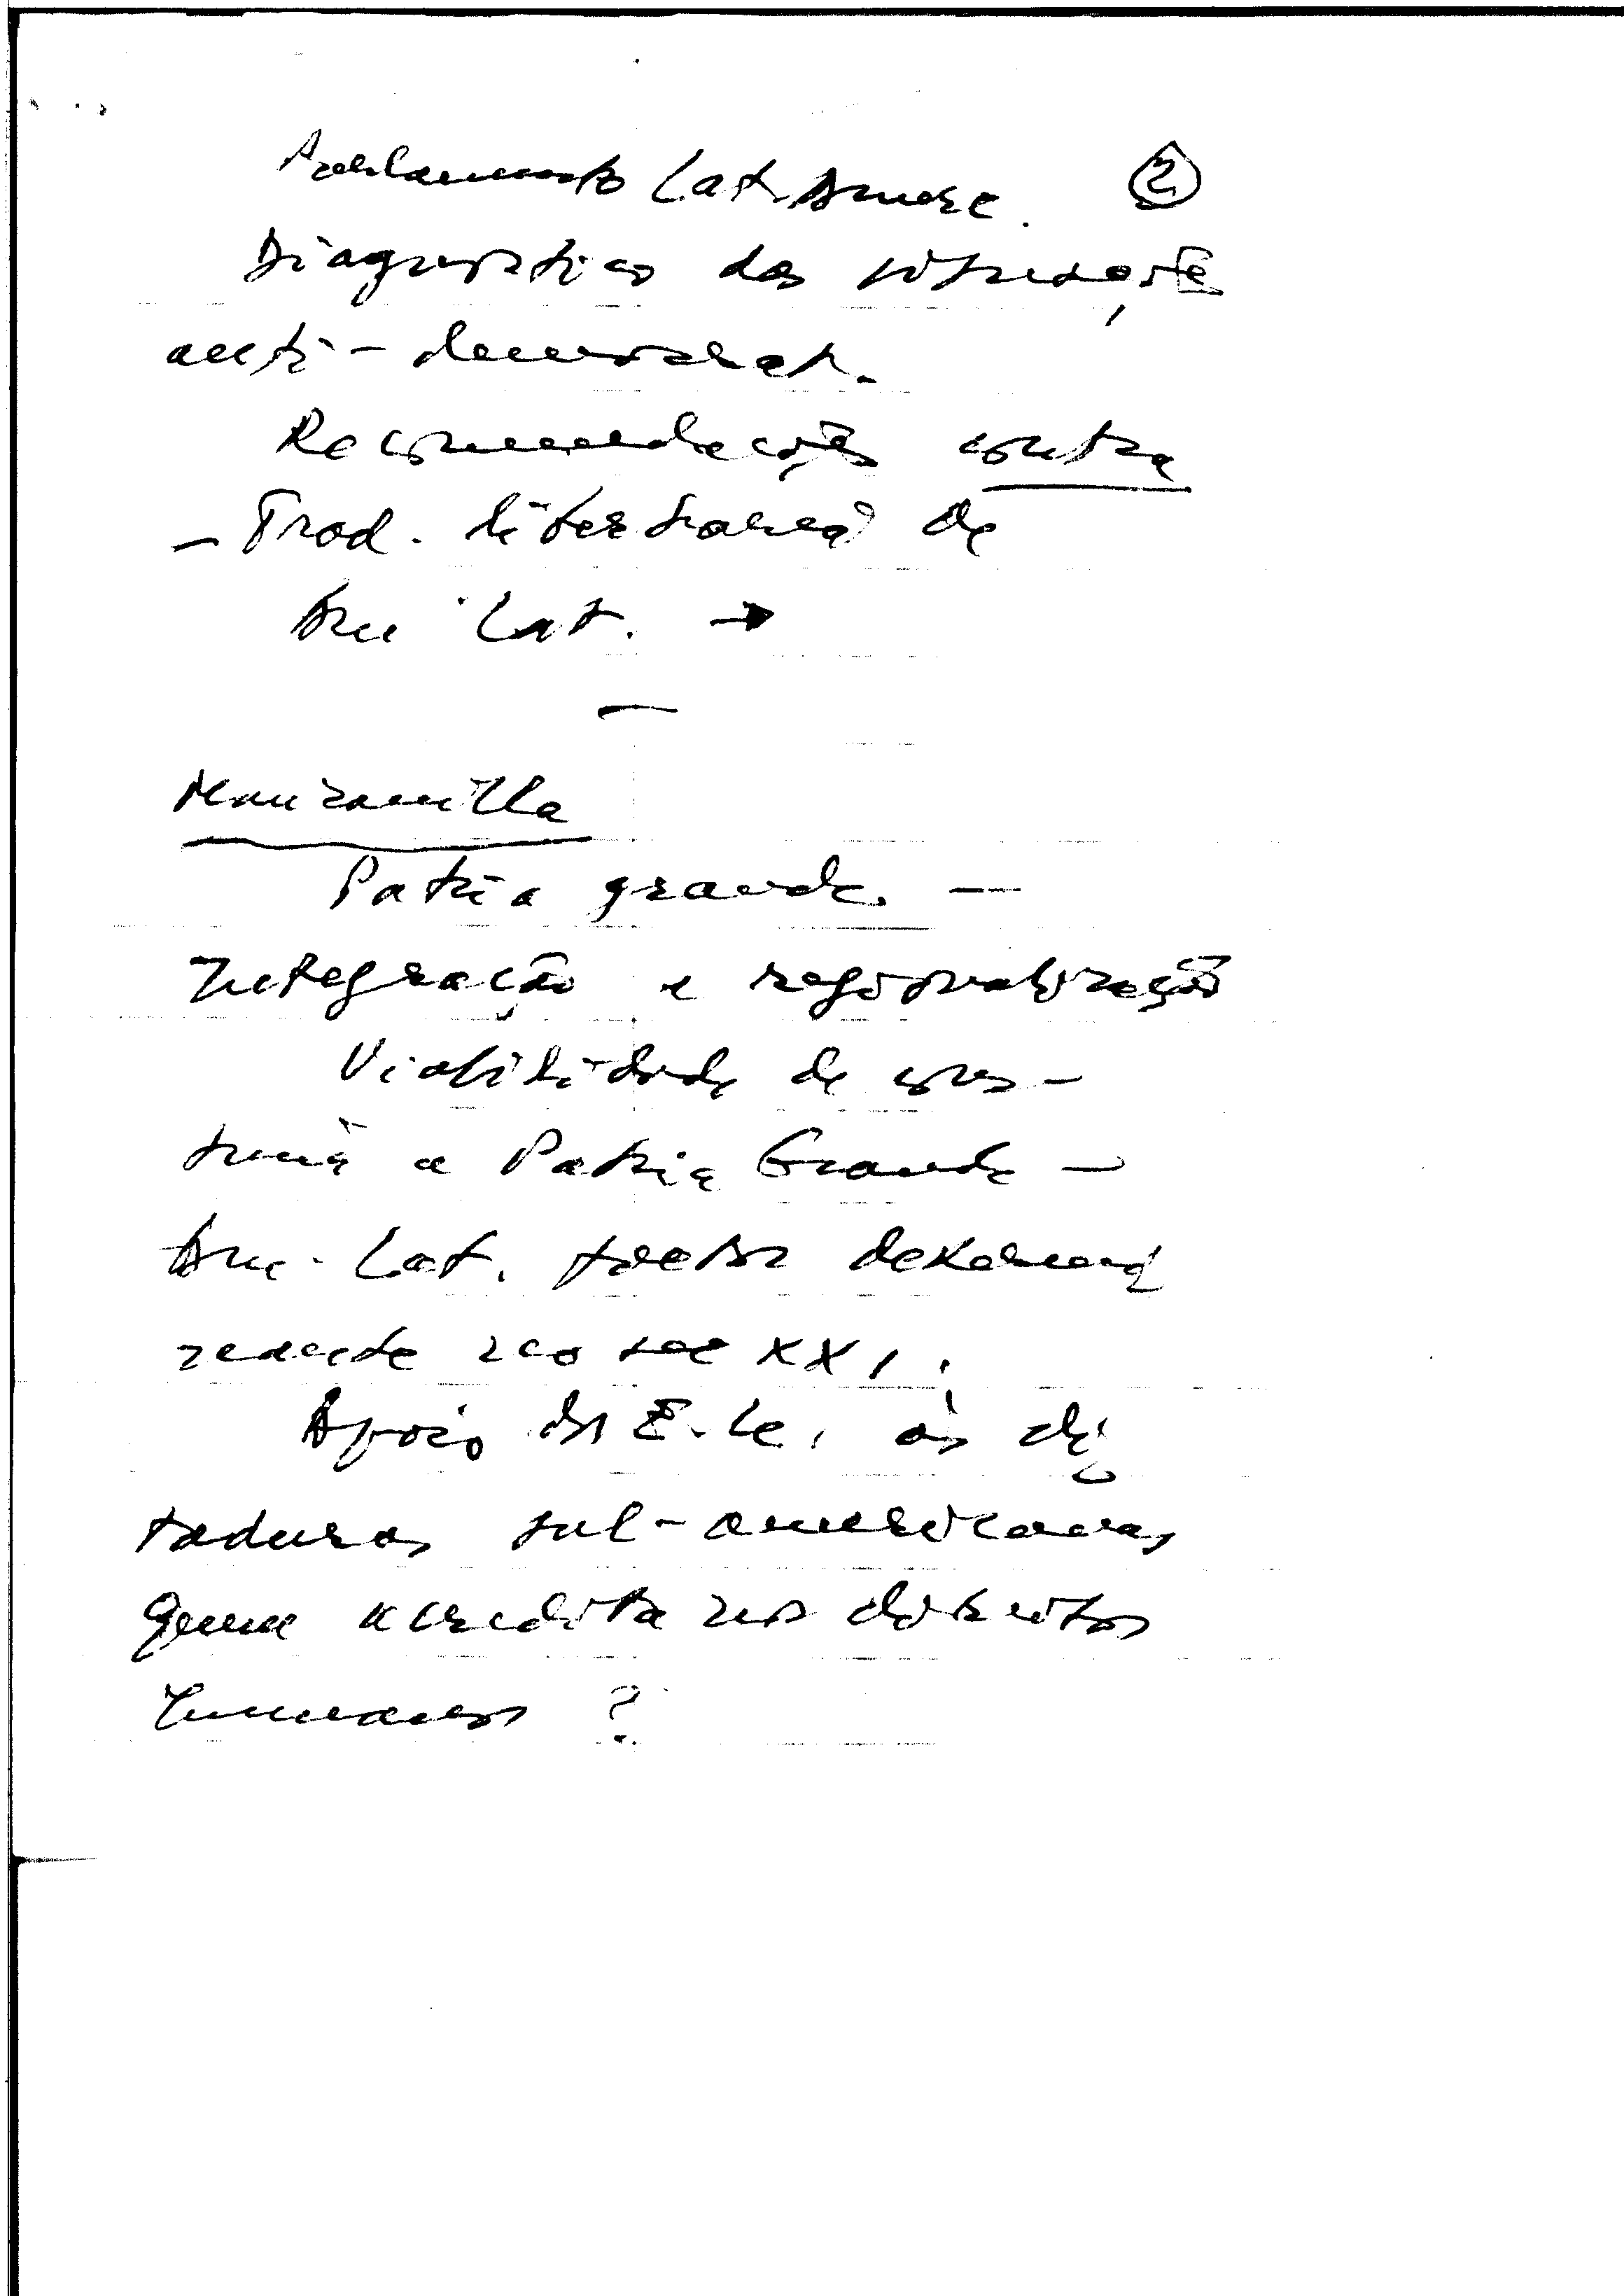 Parlamento Lat. Amer. ②
Diagnostico das situações
anti-democrat.
Recomendações contra
- Trad. libertaria de
Am Lat. →
—
Manzanilla
Patria grande. —
Integração e regionalização
Viabilidade de cons-
truir a Patria Grande —
Am. Lat. fator determi
nante no sec XXI.
Apoio dos E.U. às di
taduras sul-americanas,
Quem acredita nos direitos
humanos ?